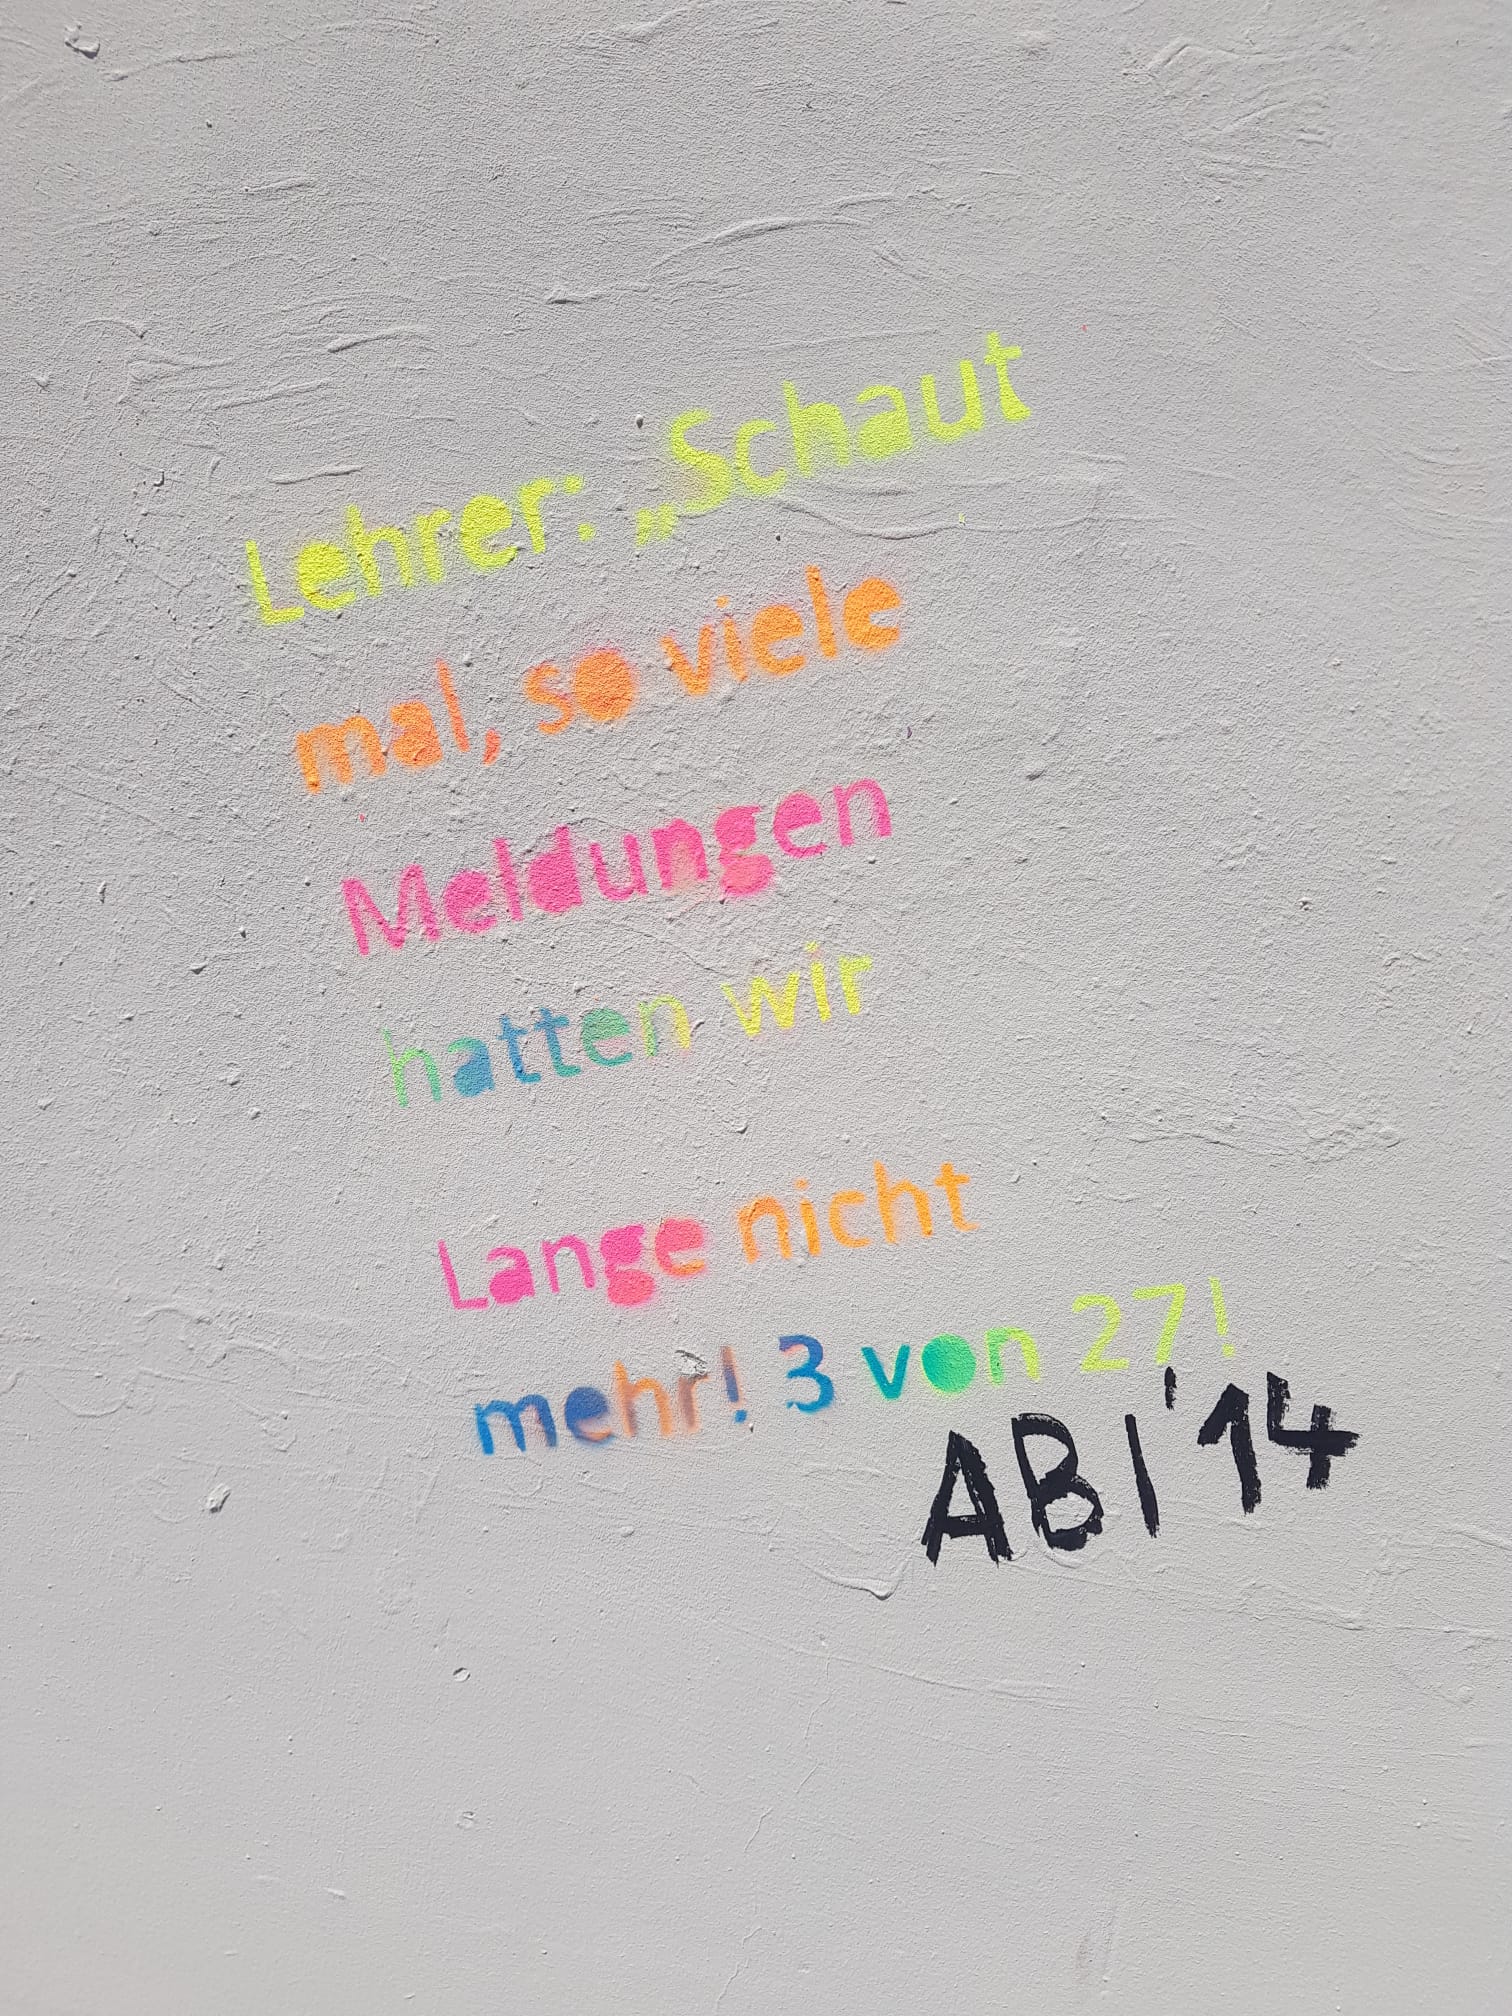 Lehrer: „Schaut
mal, so viele
Meldungen
hatten wir
Lange nicht
mehr! 3 von 27!
ABI '14